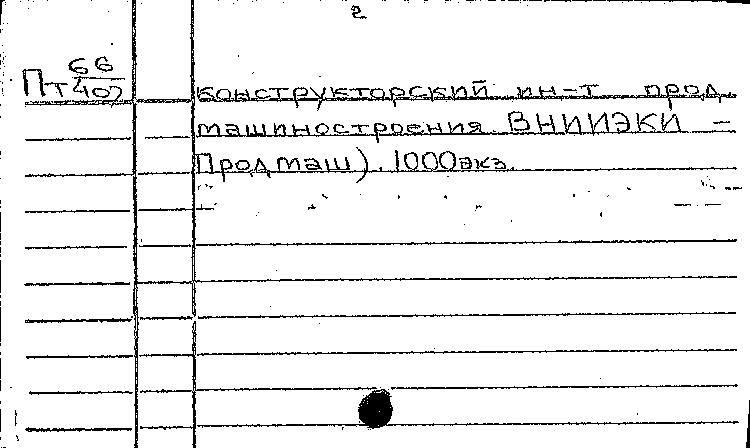 2
66
Пт 407
конструкторский ин-т прод.
машиностроения ВНИИЭКИ -
Продмаш). 1000 экз.